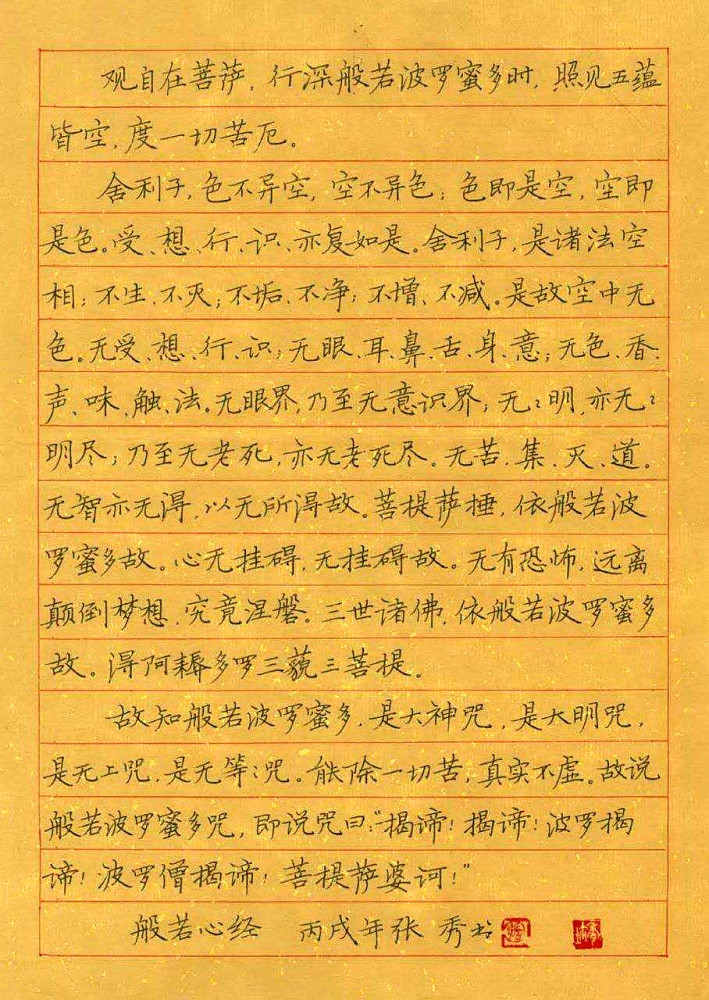 观自在菩萨，行深般若波罗蜜多时，照见五蕴
皆空，度一切苦厄。
舍利子，色不异空，空不异色；色即是空，空即
是色。受、想、行、识、亦复如是。舍利子，是诸法空
相；不生、不灭；不垢、不净；不增、不减。是故空中无
色。无受、想、行、识；无眼、耳、鼻、舌、身、意；无色、香、
声、味、触、法。无眼界，乃至无意识界；无〻明，亦无〻
明尽；乃至无老死，亦无老死尽。无苦、集、灭、道。
无智亦无得，以无所得故。菩提萨埵，依般若波
罗蜜多故。心无挂碍，无挂碍故。无有恐怖，远离
颠倒梦想，究竟涅磐。三世诸佛，依般若波罗蜜多
故。得阿耨多罗三藐三菩提。
故知般若波罗蜜多，是大神咒，是大明咒，
是无上咒，是无等〻咒。能除一切苦，真实不虚。故说
般若波罗蜜多咒，即说咒曰：“揭谛！揭谛！波罗揭
谛！波罗僧揭谛！菩提萨婆诃！”
般若心经 丙戌年张 秀书